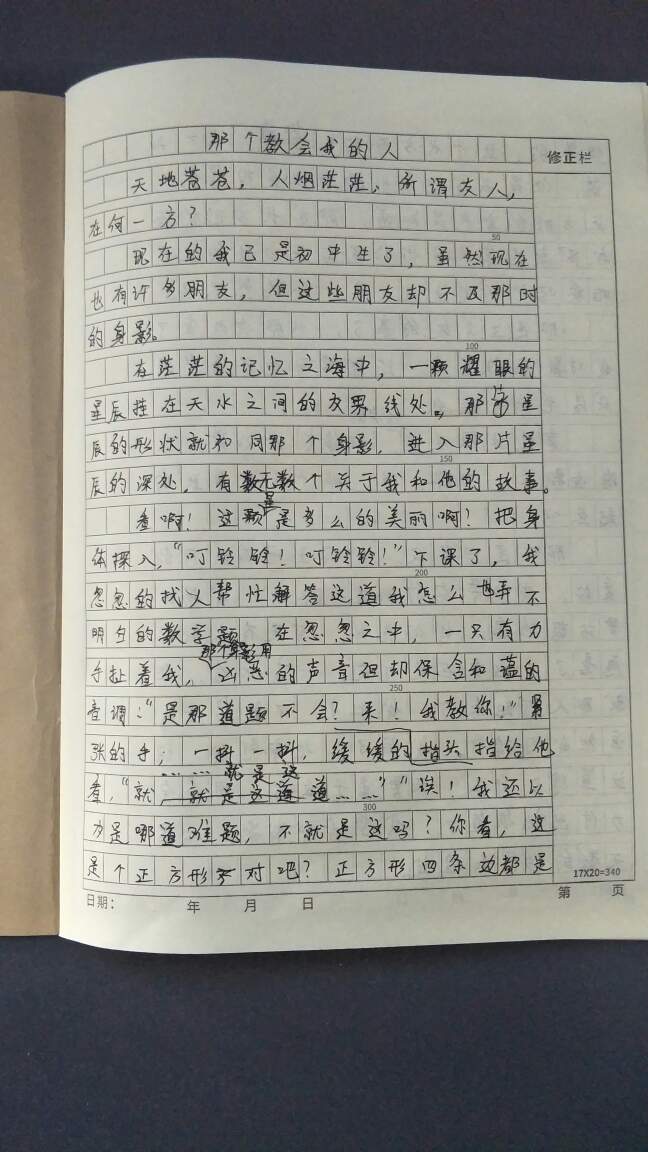 那个教会我的人
修正栏
天地苍苍，人烟茫茫，所谓友人，
在何一方？
50
现在的我已是初中生了，虽然现在
也有许多朋友，但这些朋友却不及那时
的身影。
100
在茫茫的记忆之海中，一颗耀眼的
星辰挂在天水之间的交界线处。，那星
辰的形状就和同那个身影，进入那片星
150
辰的深处，有数无数个关于我和他的故事。
看啊！这颗星是多么的美丽啊？把身
体探入，“叮铃铃！叮铃铃！”下课了，我
200
忽忽的找人帮忙解答这道我怎么也弄不
明白的数学题，在忽忽之中，一只有力
手扯着我，那个身影用凶恶的声音但却保含和蕴的
250
音调：“是那道题不会？来！我教你！”紧
张的手；一抖一抖，缓缓的指头指给他
看，“就……就是这道……”“诶！我还以
300
为是哪道难题，不就是这吗？你看，这
是个正方形对吧？正方形四条边都是
17X20=340
日期： 年 月 日 第 页